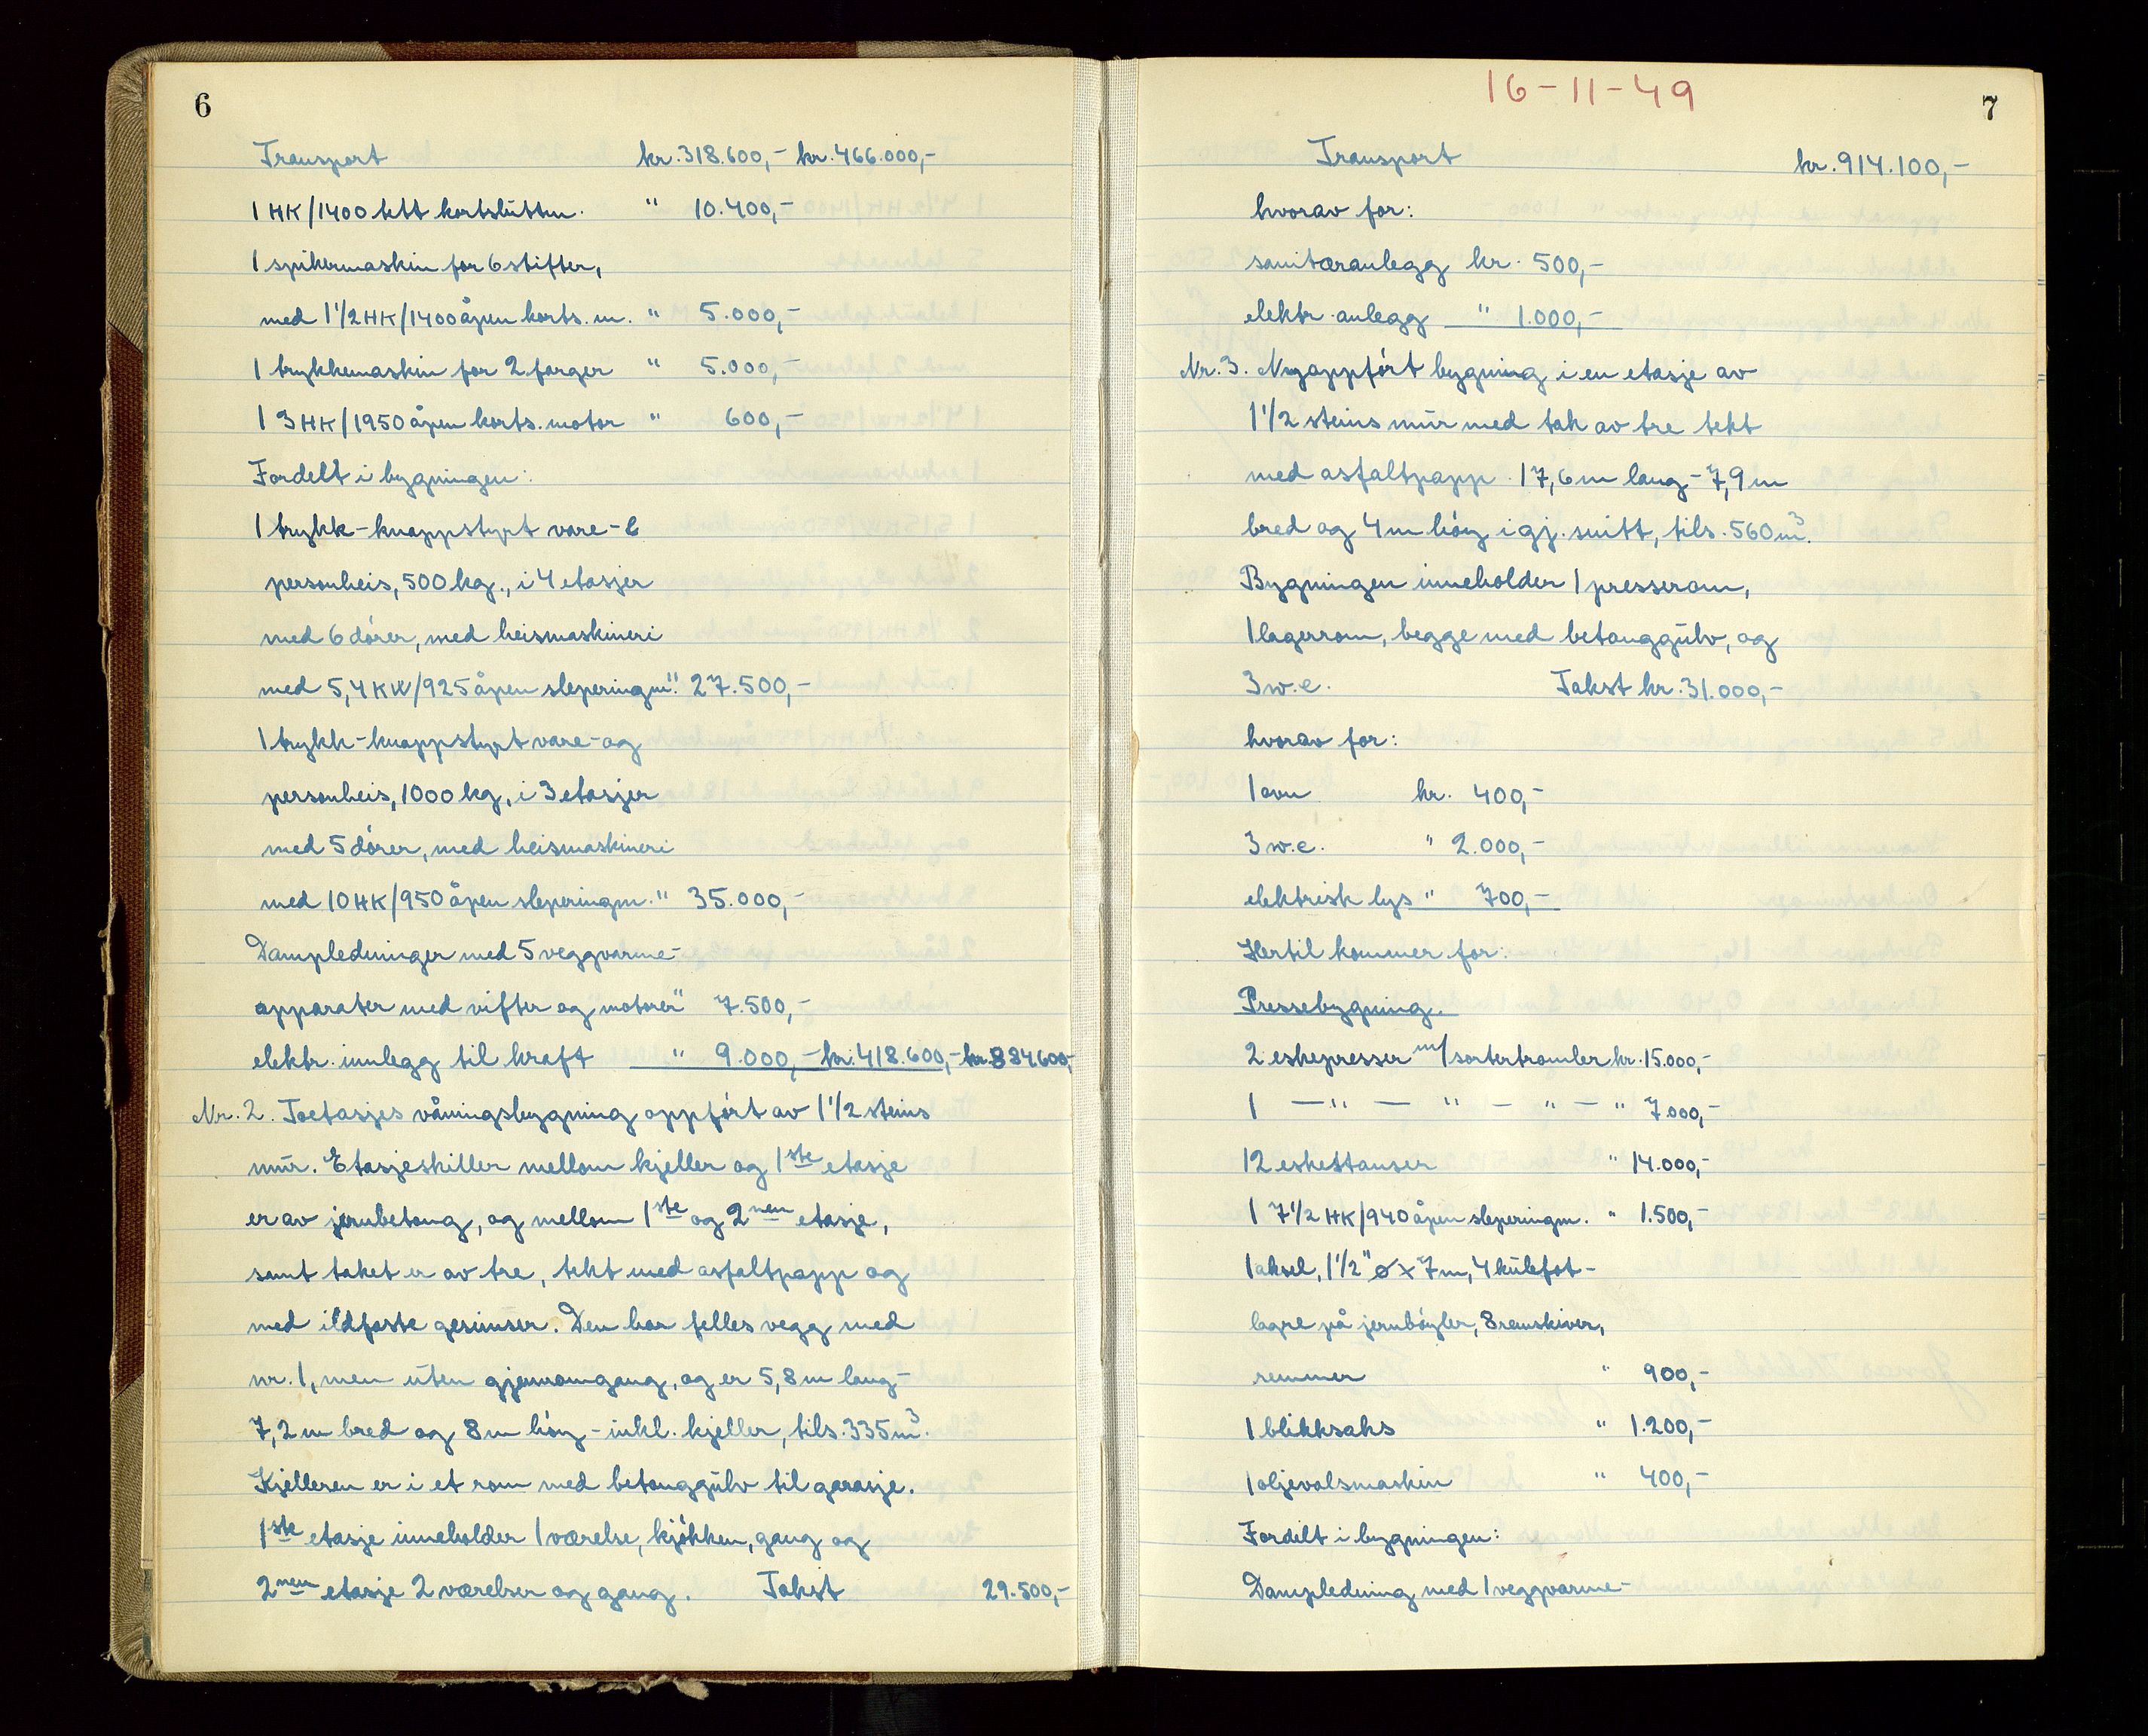 6
Transport kr. 318.600,- kr. 466.000,-
1 HK/1400 tett kortsluttm. " 10.400,-
1 spikermaskin for 6 stifter,
med 1 1/2 HK/1400 åpen korts. m. " 5.000,-
1 trykkemaskin for 2 farger " 5.000,-
1 3 HK/1950 åpen korts. motor " 600,-
Fordelt i bygningen:
1 trykk-knappstyrt vare- &
personheis, 500 kg., i 4 etasjer
med 6 dører, med heismaskineri
med 5,4 KW/925 åpen sleperingm. " 27.500,-
1 trykk-knappstyrt vare- og
personheis, 1000 kg, i 3 etasjer
med 5 dører, med heismaskineri
med 10 HK/950 åpen sleperingm. " 35.000,-
Dampledninger med 5 veggvarme-
apparater med vifter og motorer " 7.500,-
elektr. innlegg til kraft " 9.000,- kr. 418.600,- kr. 884600,-
Nr. 2. Toetasjes våningsbygning oppført av 1 1/2 steins
mur. Etasjeskiller mellom kjeller og 1ste etasje
er av jernbetong, og mellom 1ste og 2nen etasje,
samt taket er av tre, tekt med asfaltpapp og
med ildfaste gesimser. Den har felles vegg med
nr. 1, men uten gjennomgang, og er 5,8 m lang -
7,2 m bred og 8 m høy - inkl. kjeller, tils. 335 m³.
Kjelleren er i et rom med betonggulv til garasje.
1ste etasje inneholder 1 værelse, kjøkken, gang og
2nen etasje 2 værelser og gang. Takst 29.500,-
16-11-49
7
Transport kr. 914.100,-
hvorav for:
sanitæranlegg kr. 500,-
elektr. anlegg " 1.000,-
Nr. 3. Nyoppført bygning i en etasje av
1 1/2 steins mur med tak av tre tekt
med asfaltpapp 17,6 m lang - 7,9 m
bred og 4 m høy i gj. snitt, tils. 560 m³.
Bygningen inneholder 1 presserom,
1 lagerrom, begge med betonggulv, og
3 w.c. Takst kr. 31.000,-
hvorav for:
1 ovn kr. 400,-
3 w.c. " 2.000,-
elektrisk lys " 700,-
Hertil kommer for:
Pressebygning.
2 eskepresser m/ sortertromler kr. 15.000,-
1 — " — " — " — " 7.000,-
12 eskestanser " 14.000,-
1 7 1/2 HK/940 åpen sleperingm. " 1.500,-
1 aksel, 1 1/2" ø x 7 m, 4 kulefot-
lagre på jernbøyler, 8 remskiver,
remmer " 900,-
1 blikksaks " 1.200,-
1 oljevalsmaskin " 400,-
Fordelt i bygningen:
Dampledning med 1 veggvarme-